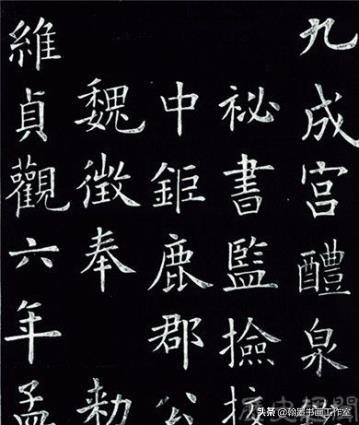 九成宮醴泉
祕書監撿挍
中鉅鹿郡公
魏徵奉 勑
維貞觀六年孟
歷史趣聞
头条 @翰海书画工作室